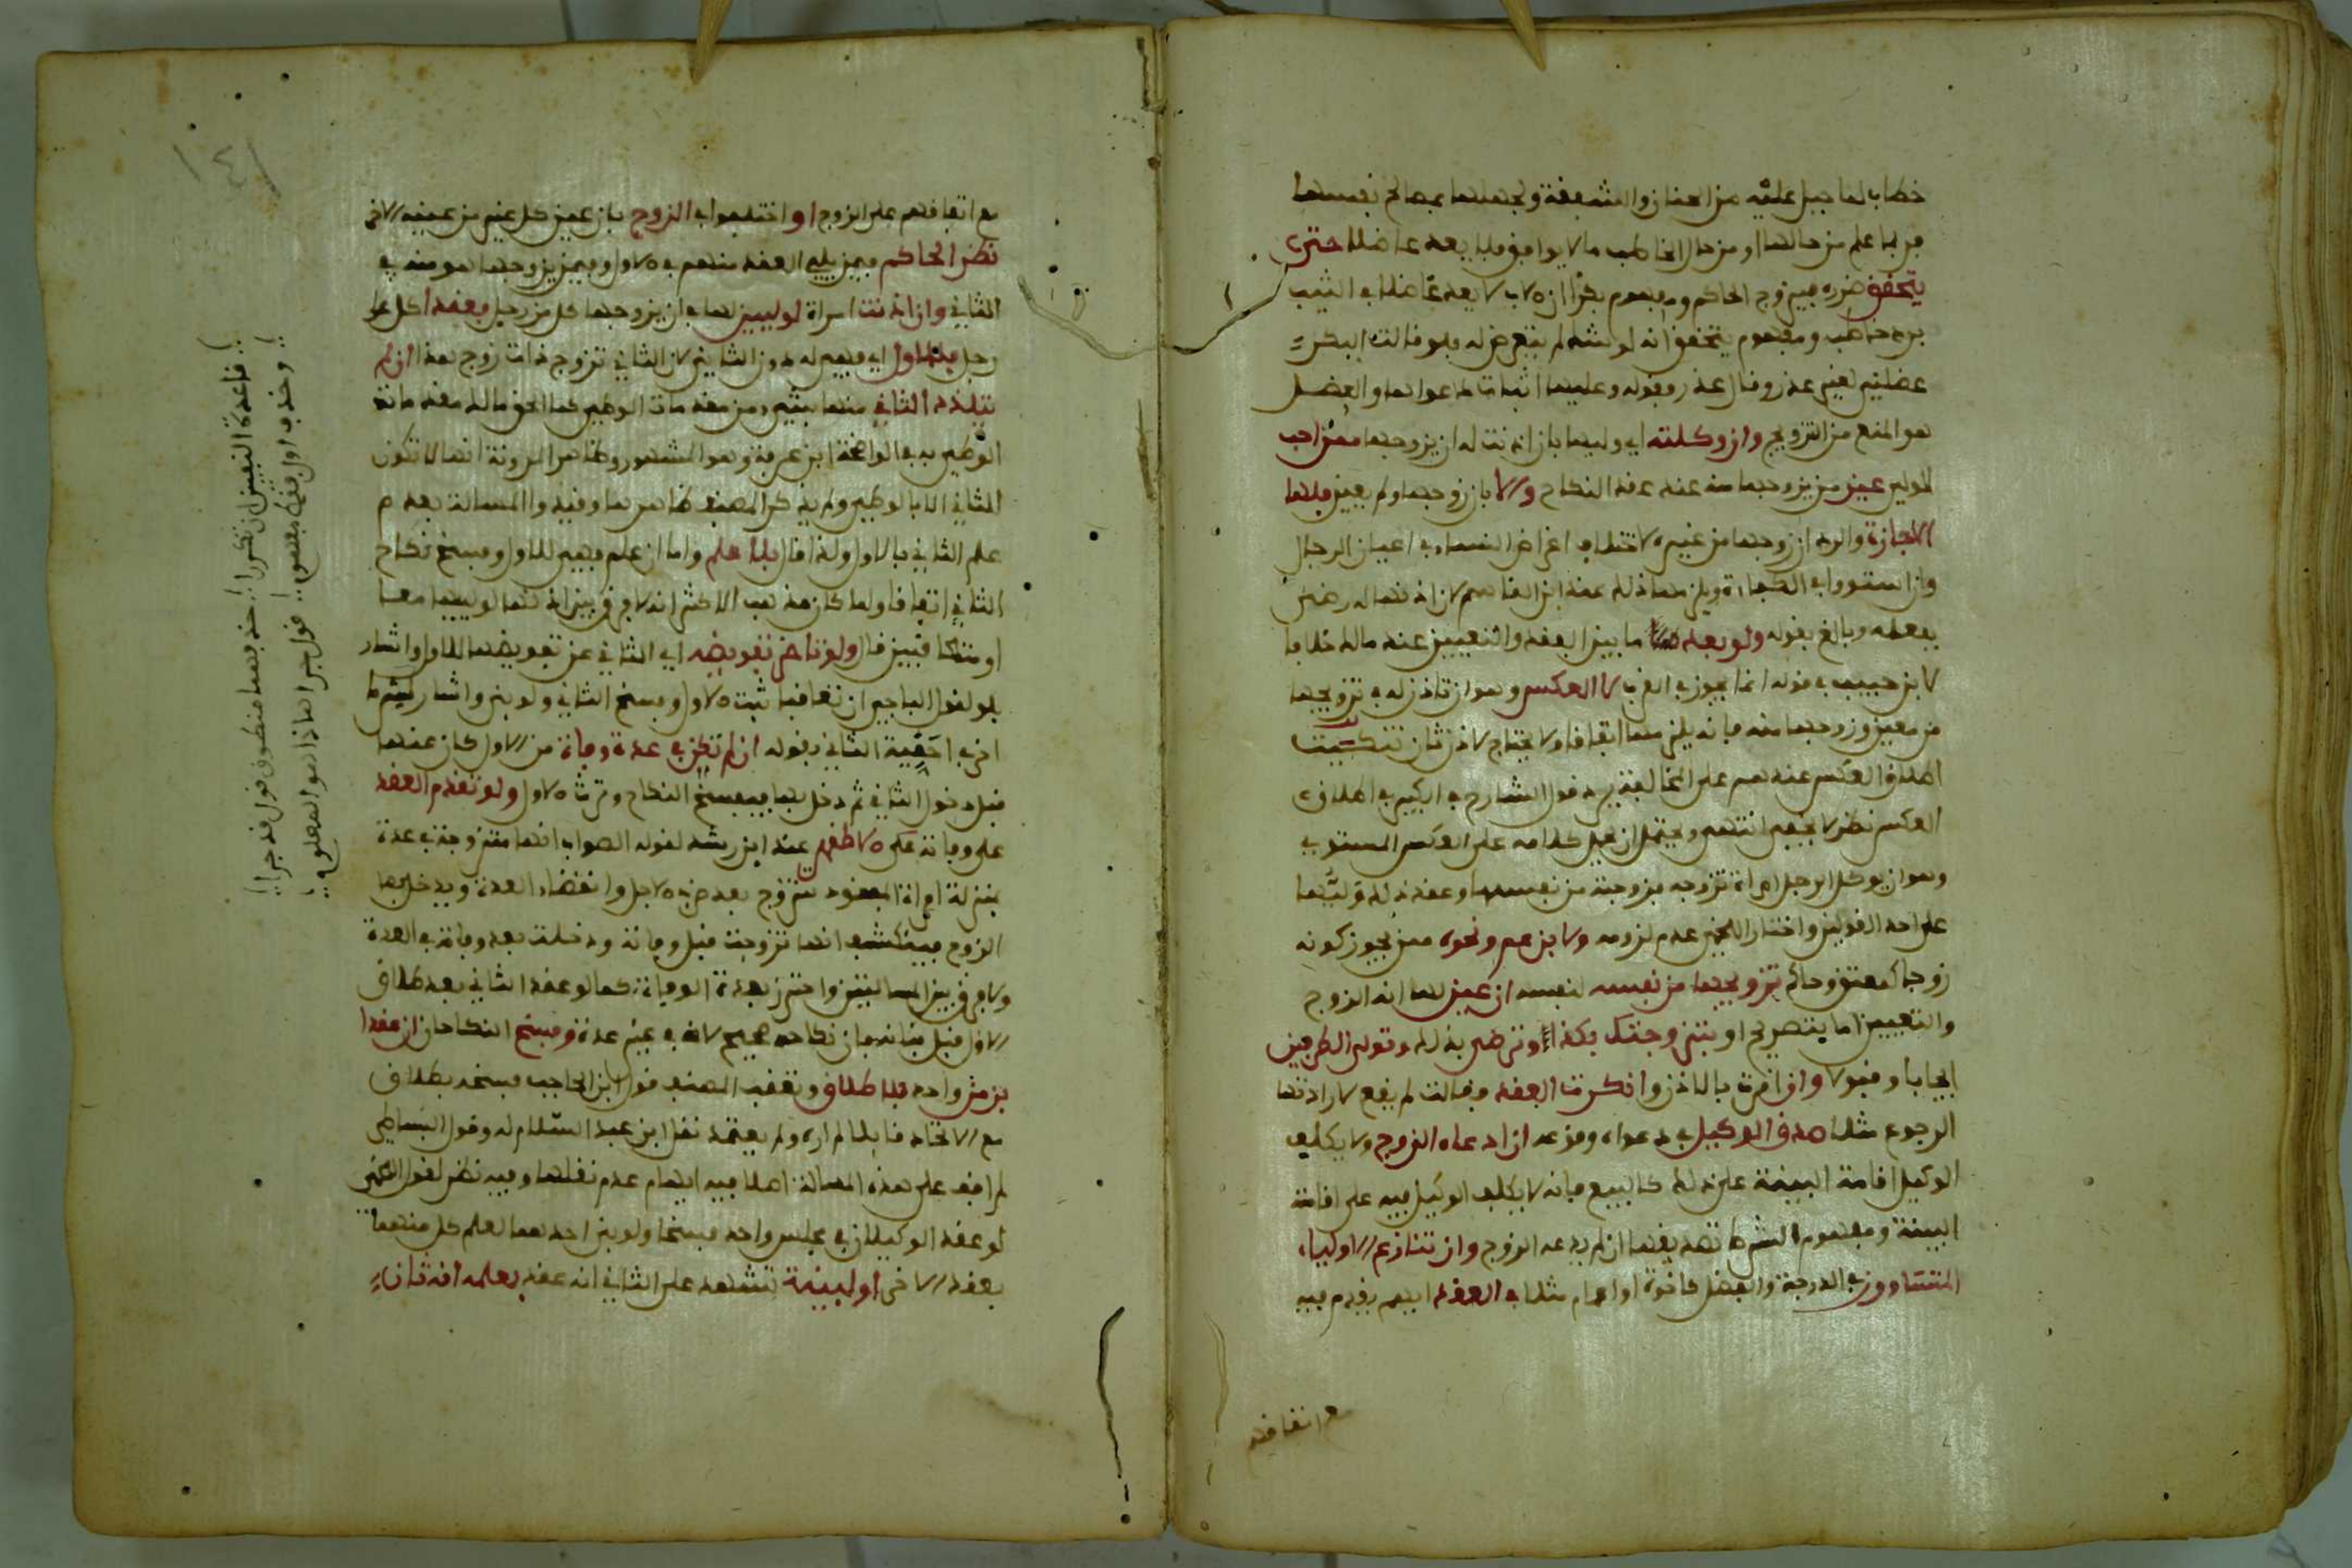 خطاب لما جبل عليه من الحنان والشفقة ولجهلها بمصالح نفسها
فربما علم من حالها او من حال الخاطب ما لا يوافق فلا يعد عاضلا حتى
يتحقق ضرره فيزوج الحاكم ومفهوم بكرا ان الاب لا يعد عاضلا في الثيب
برد خاطب ومفهوم يتحقق انه لو شك لم يتعرض له فلو قالت البكر
عضلني لغير عذر وقال عذر فقوله وعليها اثبات دعواها والعضل
هو المنع من التزويج وان وكلته اي وليها بان اذنت له ان يزوجها ممن احب
المولى عين من يزوجها منه عند عقد النكاح والا بان زوجها ولم يعين فلها
الاجازة والرد ان زوجها من غيره لاختلاف اغراض النساء في اعيان الرجال
وان استووا في الكفاءة ويلزمها ذلك عند ابن القاسم لان اذنها له رضى
بفعله وبالغ بقوله ولو بعد ما بين العقد والتعيين عند مالك خلافا
لابن حبيب في قوله انما يجوز في القرب لا العكس وهو ان تاذن له في تزويجها
من معين وزوجها منه فانه يلزمها اتفاقا ولا يحتاج لاذن ثان تنكيت
اطلاق العكس عندهم على المخالفة يرد قول الشارح في الكبير في اطلاق
العكس نظر لا يخفى انتهى ويحتمل ان يحمل كلامه على العكس المستوي
وهو ان يوكل الرجل امراة تزوجه فزوجته من نفسها وعقد ذلك وليها
على احد القولين واختار اللخمي عدم لزومه ولابن عم ونحوه ممن يجوز كونه
زوجا كمعتق وحاكم تزويجها من نفسه لنفسه ان عين لها انه الزوج
والتعيين اما بتصريح او بتزوجتك بكذا وترضى بذلك وتولى الطرفين
ايجابا وقبولا وان اقرت بالاذن وانكرت العقد وقالت لم يقع لارادتها
الرجوع مثلا صدق الوكيل في دعواه وقوعه ان ادعاه الزوج ولا يكلف
الوكيل اقامة البينة على ذلك كالبيع فانه لا يكلف الوكيل فيه على اقامة
البينة ومفهوم الشرط تصديقها ان لم يدعه الزوج وان تنازع الاولياء
المتساوون في الدرجة والفضل كاخوة او اعمام مثلا في العقد ايهم يقدم فيه
مع اتفاقهم
١٤١
مع اتفاقهم على الزوج او اختلفوا في الزوج بان عين كل غير من عينه الاخر
نظر الحاكم فيمن يلي العقد منهم في الاول وفيمن يزوجها هو منه في
الثاني وان اذنت امراة لوليين لها في ان يزوجها كل من رجل فعقدا كل على
رجل فللاول اي فهي له دون الثاني لان الثاني تزوج ذات زوج هذا ان لم
يتلذذ الثاني منها بشيء من مقدمات الوطئ كما الحق مالك مقدماته
الوطئ به في الواضحة ابن عرفة وهو المشهور وظاهر المدونة انها لا تكون
للثاني الا بالوطئ ولم يذكر المصنف ظاهرها وقيدوا المسالة بعدم
علم الثاني بالاول ولذا قال بلا علم واما ان علم فهي للاول وفسخ نكاح
الثاني اتفاقا ولما كان مذهب الاكثر انه لا فرق بين اذنها لولييها معا
او متعاقبين قال ولو تاخر تفويضه اي الثاني عن تفويضها للاول واشار
بلو لقول الباجي ان تعاقبا ثبت الاول وفسخ الثاني ولو بنى واشار لشرط
اخر في احقية الثاني بقوله ان لم تكن في عدة وفاة من الاول كان عقدها
قبل دخول الثاني ثم دخل بها فيفسخ النكاح وترث الاول ولو تقدم العقد
على وفاته على الاظهر عند ابن رشد لقوله الصواب انها متزوجة في عدة
بمنزلة امراة المفقود تتزوج بعد ضرب الاجل وانقضاء العدة ويدخل بها
الزوج فينكشف انها تزوجت قبل وفاته ودخلت بعد وفاته في العدة
ولا فرق بين المسالتين واحترز بعدة الوفاة كما لو عقد الثاني بعد طلاق
الاول قبل بنائه فان نكاحه صحيح لانه في غير عدة وفسخ النكاحان ان عقدا
بزمن واحد بلا طلاق وتعقب المصنف قول ابن الحاجب فسخه بطلاق
مع الاتحاد قائلا لم اره ولم يعتمد نقل ابن عبد السلام له وقول البساطي
لم اقف على هذه المسالة اصلا فيه ايهام عدم نقلها وفيه نظر لقول اللخمي
لو عقد الوكيلان في مجلس واحد فسخا ولو بنى احدهما لعلم كل منهما
بعقد الاخر او لبينة تشهد على الثاني انه عقد بعلمه انه ثان
قاعدة التعيين ان تكررا
خذ فيهما منطوق قول قد جرا
وخذ في اول مفهوم